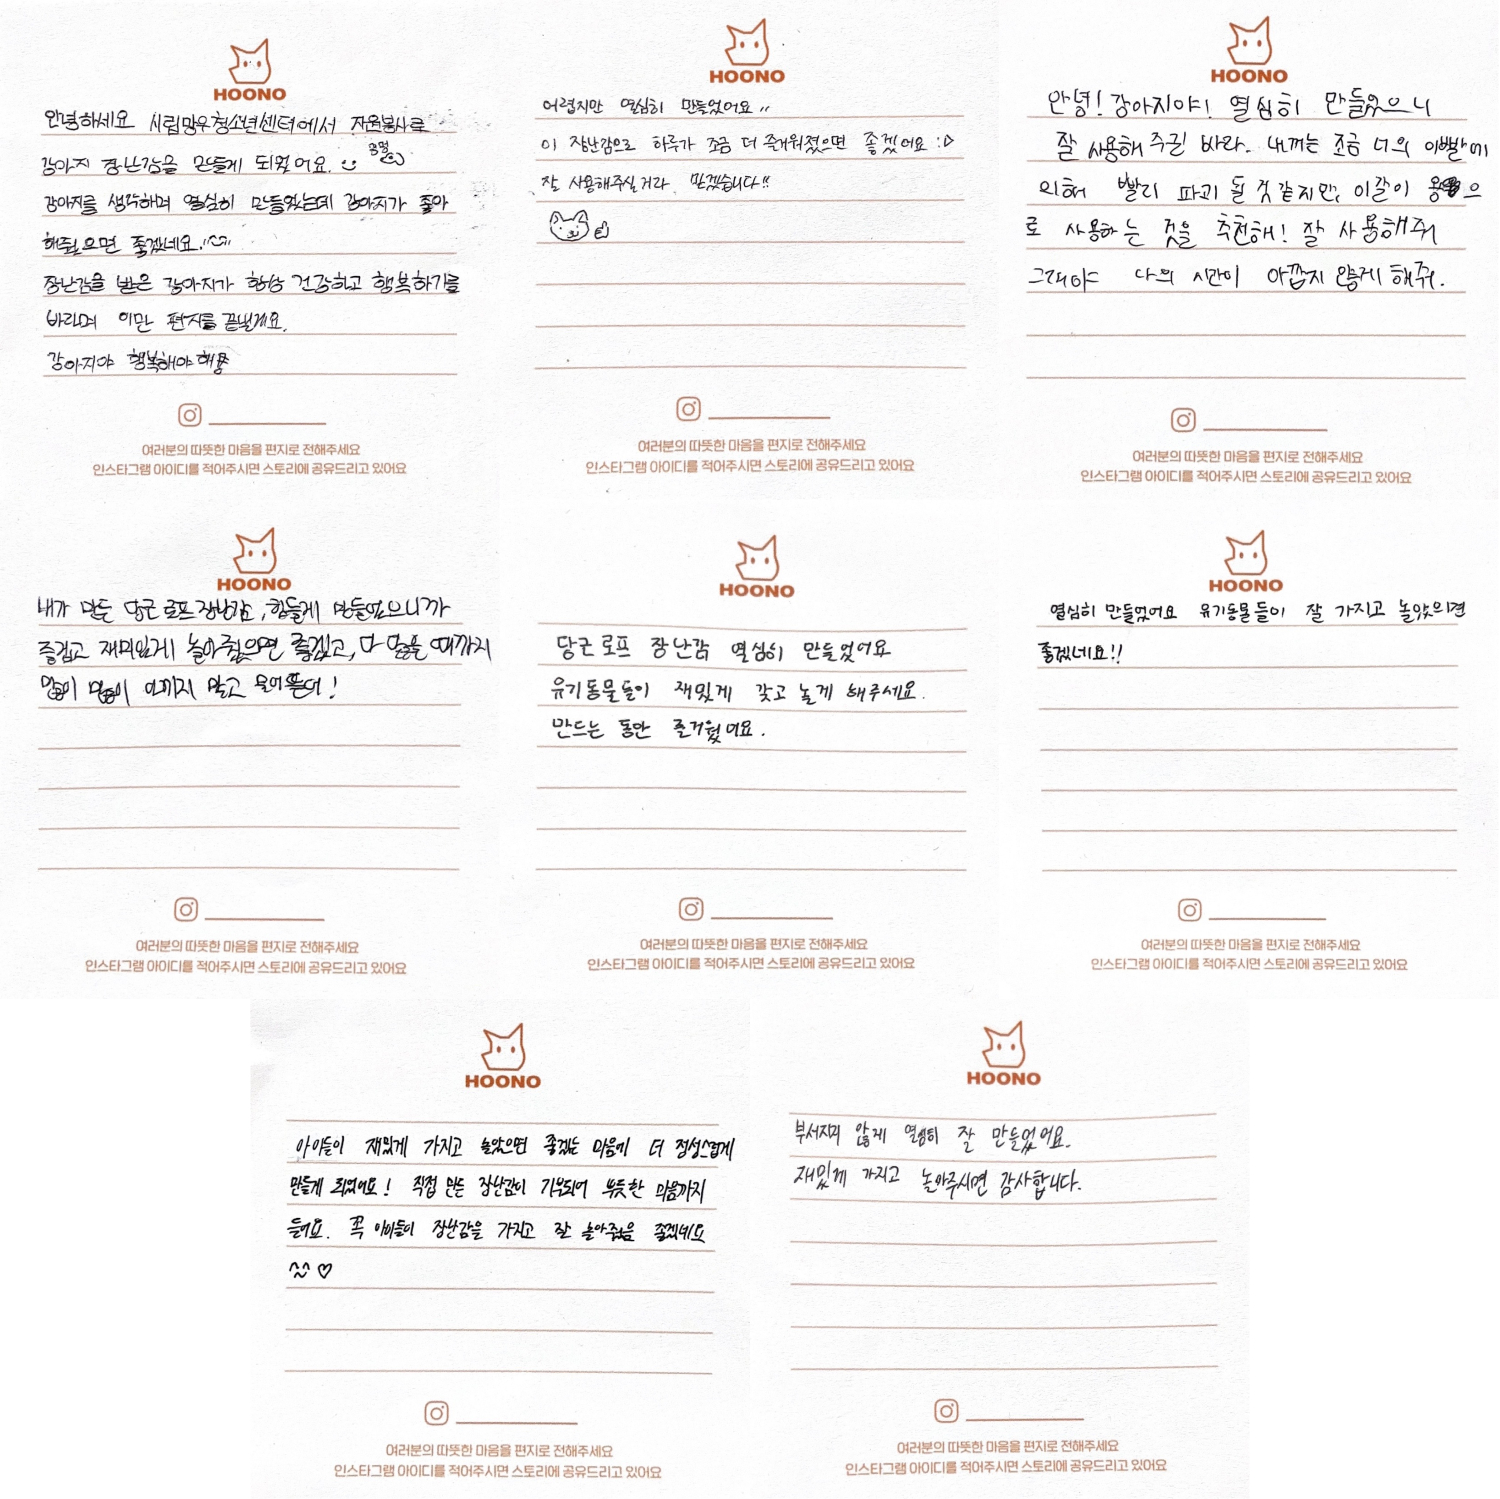 HOONO
안녕하세요 시립망우청소년센터에서 자원봉사로
강아지 장난감을 만들게 되었어요.
강아지를 생각하며 열심히 만들었는데 강아지가 좋아
해줬으면 좋겠네요.
장난감을 받은 강아지가 항상 건강하고 행복하기를
바라며 이만 편지를 끝낼게요.
강아지야 행복해야해
여러분의 따뜻한 마음을 편지로 전해주세요
인스타그램 아이디를 적어주시면 스토리에 공유드리고 있어요
HOONO
어렵지만 열심히 만들었어요 !!
이 장난감으로 하루가 조금 더 즐거워졌으면 좋겠어요 :D
잘 사용해주실거라 믿겠습니다!!
여러분의 따뜻한 마음을 편지로 전해주세요
인스타그램 아이디를 적어주시면 스토리에 공유드리고 있어요
HOONO
안녕! 강아지야! 열심히 만들었으니
잘 사용해 주길 바라. 내꺼는 조금 너의 이빨에
의해 빨리 파괴 될 것 같지만, 이갈이 용으
로 사용하는 것을 추천해! 잘 사용해줘
그래야 나의 시간이 아깝지 않게 해줘.
여러분의 따뜻한 마음을 편지로 전해주세요
인스타그램 아이디를 적어주시면 스토리에 공유드리고 있어요
HOONO
내가 만든 당근 로프 장난감, 힘들게 만들었으니까
즐겁고 재미있게 놀아줬으면 좋겠고, 다 닳을 때까지
많이 많이 아끼지 말고 물어뜯어!
여러분의 따뜻한 마음을 편지로 전해주세요
인스타그램 아이디를 적어주시면 스토리에 공유드리고 있어요
HOONO
당근로프 장난감 열심히 만들었어요
유기동물들이 재밌게 갖고 놀게 해주세요.
만드는 동안 즐거웠어요.
여러분의 따뜻한 마음을 편지로 전해주세요
인스타그램 아이디를 적어주시면 스토리에 공유드리고 있어요
HOONO
열심히 만들었어요 유기동물들이 잘 가지고 놀았으면
좋겠네요!!
여러분의 따뜻한 마음을 편지로 전해주세요
인스타그램 아이디를 적어주시면 스토리에 공유드리고 있어요
HOONO
아이들이 재밌게 가지고 놀았으면 좋겠는 마음에 더 정성스럽게
만들게 되었어요! 직접 만든 장난감이 기부되어 뿌듯한 마음까지
들어요. 꼭 아이들이 장난감을 가지고 잘 놀아줬음 좋겠네요
^^ ♡
여러분의 따뜻한 마음을 편지로 전해주세요
인스타그램 아이디를 적어주시면 스토리에 공유드리고 있어요
HOONO
부서지지 않게 열심히 잘 만들었어요.
재밌게 가지고 놀아주시면 감사합니다.
여러분의 따뜻한 마음을 편지로 전해주세요
인스타그램 아이디를 적어주시면 스토리에 공유드리고 있어요